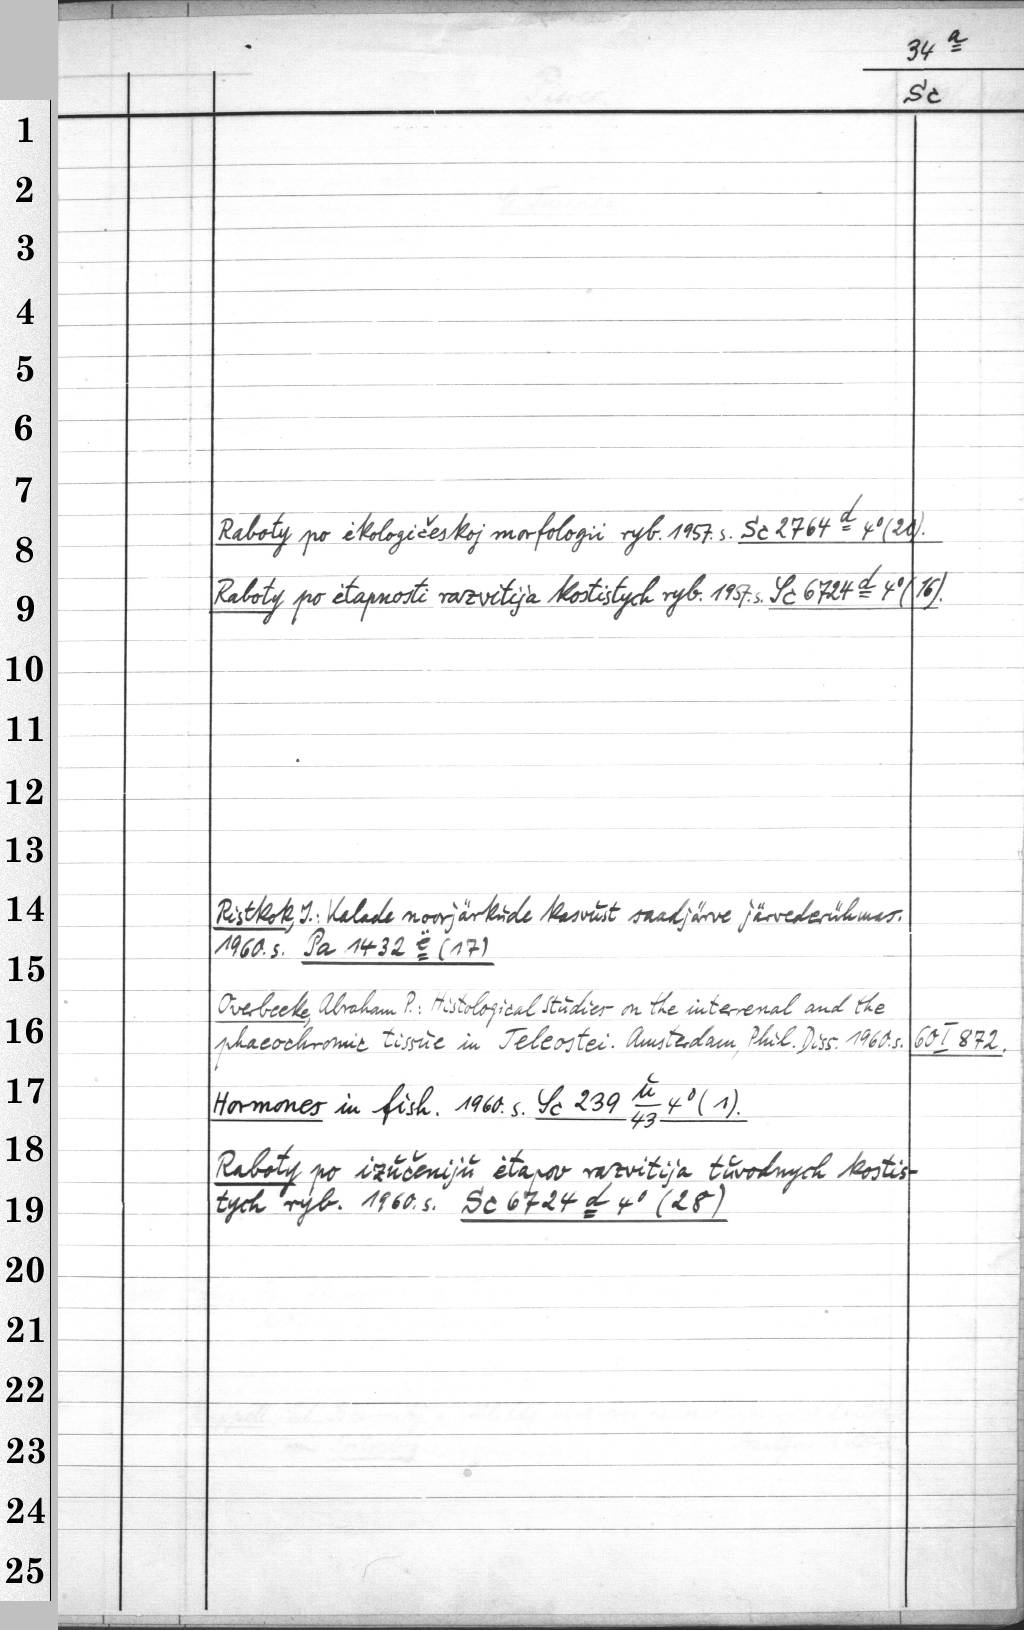 34 a
Sc
1
2
3
4
5
6
7
8
9
10
11
12
13
14
15
16
17
18
19
20
21
22
23
24
25
Raboty po ėkologičeskoj morfologii ryb. 1957. s. Sc 2764 d 4° (20).
Raboty po ėtapnosti razvitija kostistych ryb. 1957. s. Sc 6724 d 4° (16).
Ristkok, J.: Kalade noorjärkude kasvust saadjärve järvederühmas.
1960. s. Pa 1432 ë (17)
Overbeeke, Abraham P.: Histological studies on the interrenal and the
phaeochromic tissue in Teleostei. Amsterdam, Phil. Diss. 1960. s. 60 I 872.
Hormones in fish. 1960. s. Sc 239 u/43 4° (1).
Raboty po izučeniju ėtapov razvitija tuvodnych kostis-
tych ryb. 1960. s. Sc 6724 d 4° (28)